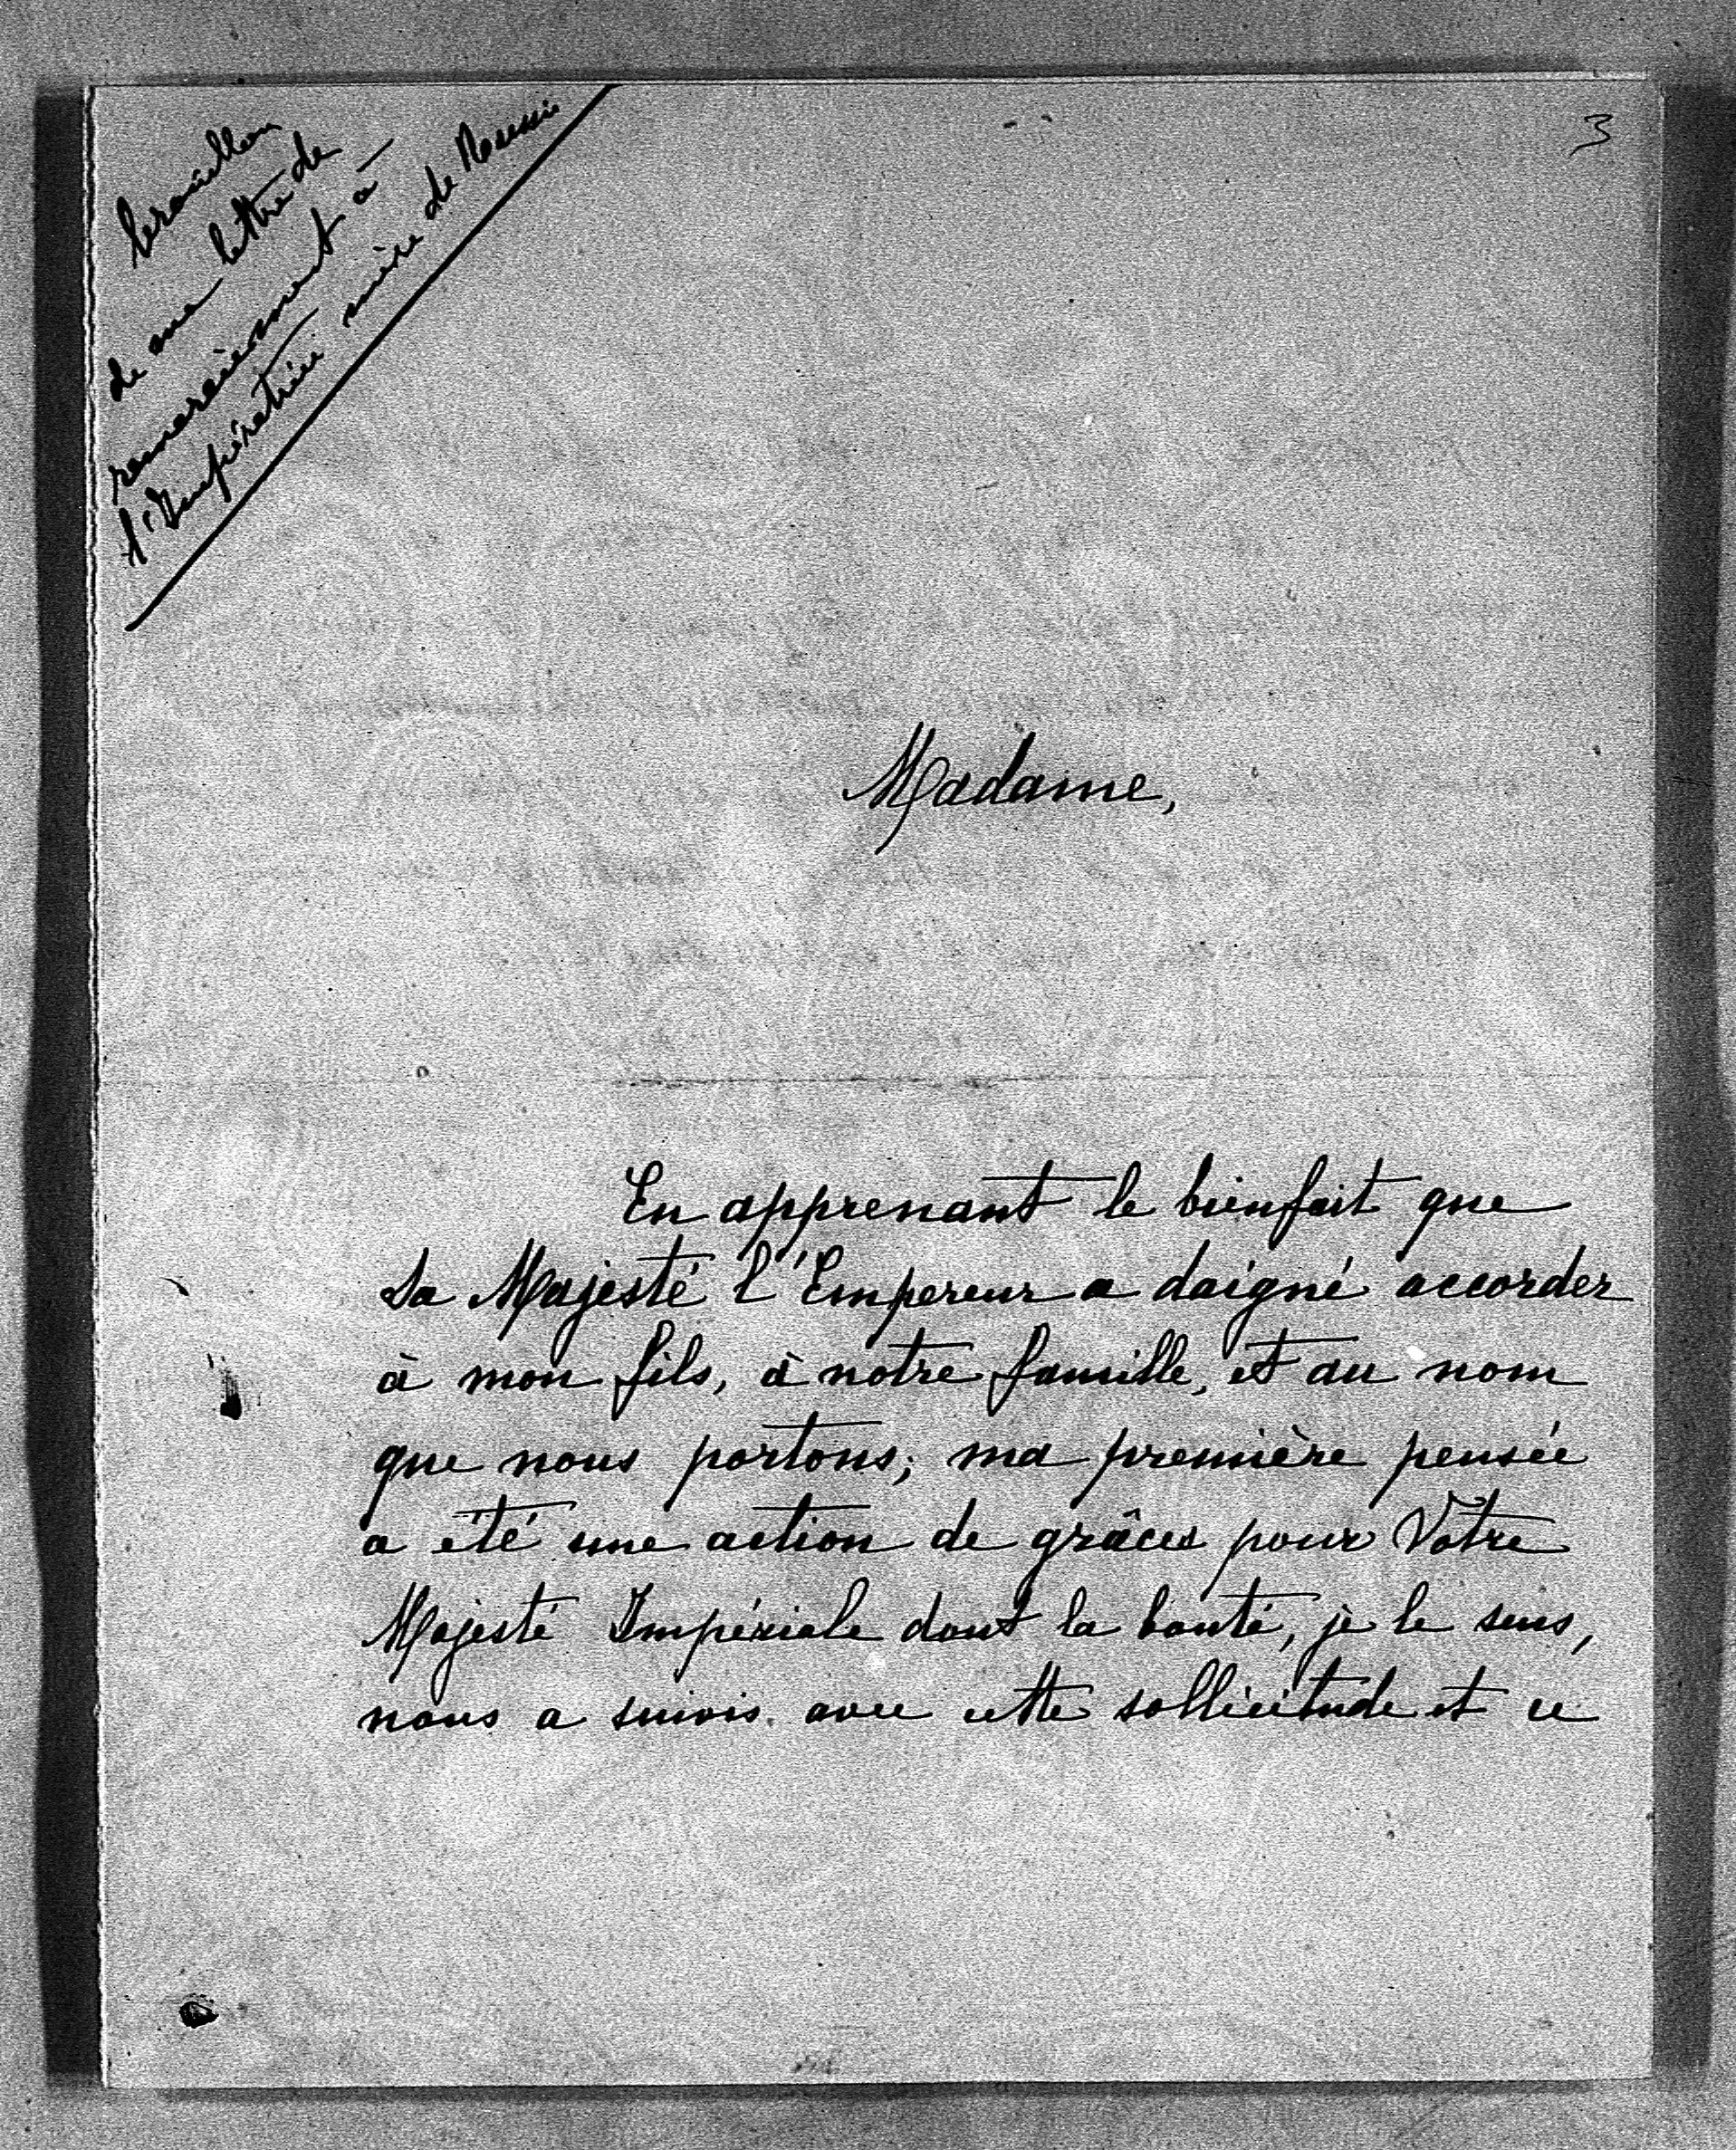 3
brouillon
de ma lettre de
remerciement à
l'Impératrice mère de Russie
Madame,
En apprenant le bienfait que
Sa Majesté l'Empereur a daigné accorder
à mon fils, à notre famille, et au nom
que nous portons; ma première pensée
a été une action de grâces pour Votre
Majesté Impériale dont la bonté, je le sens,
nous a suivis avec cette sollicitude et ce